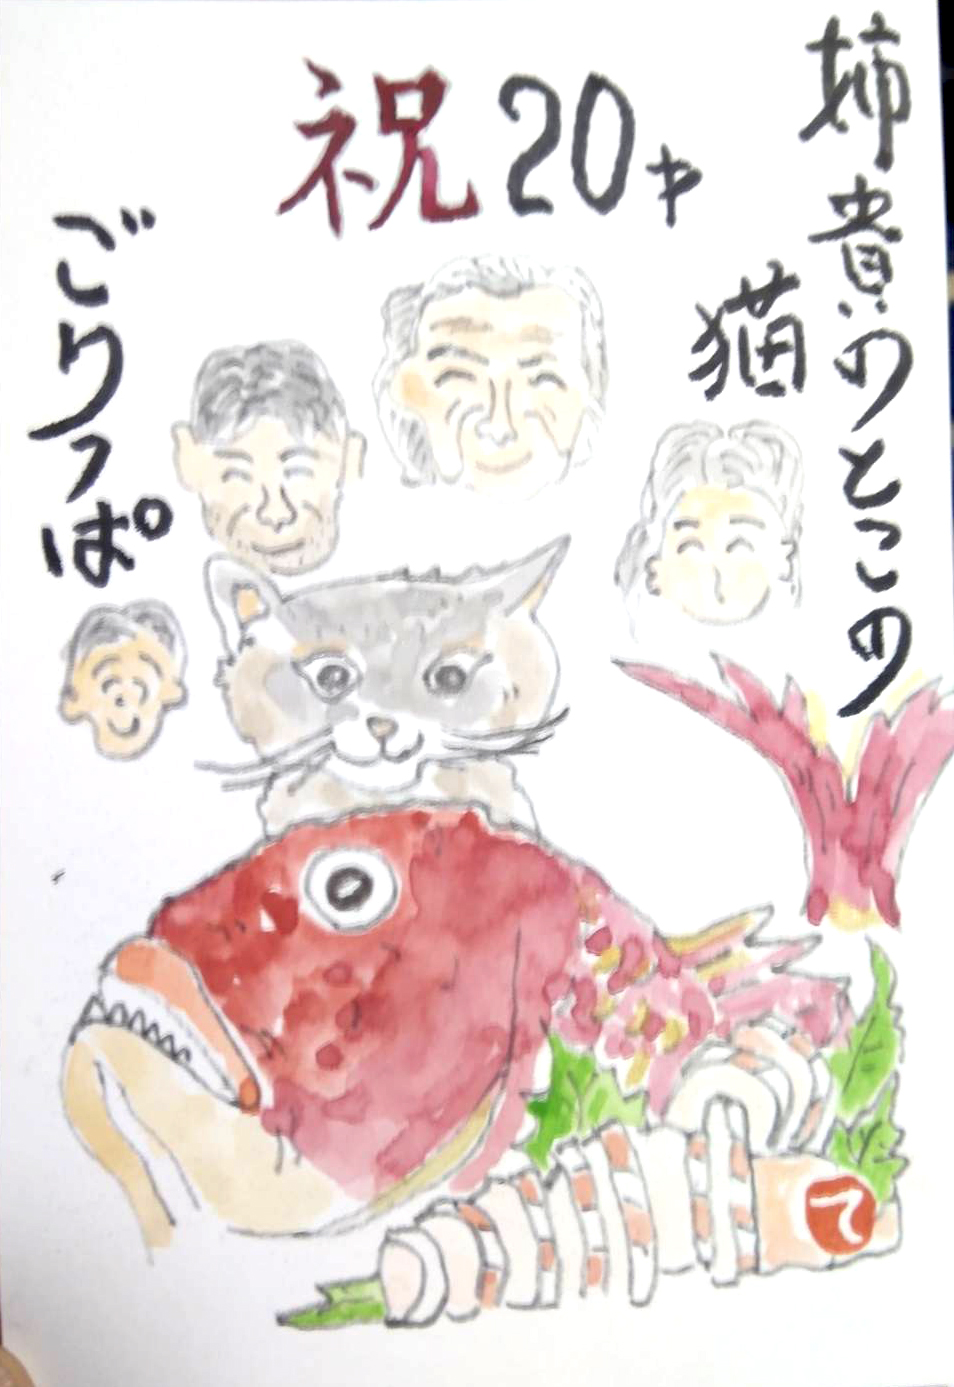 姉貴のとこの
猫
祝20才
ごりっぱ
て